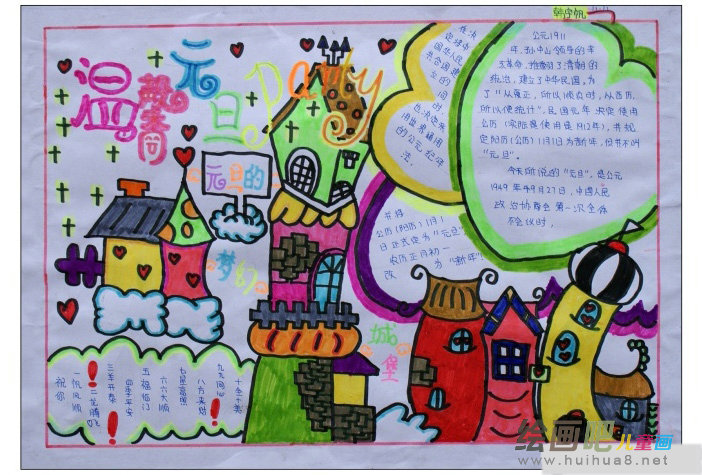 韩宇帆
温馨元旦Party
元旦的
梦幻
城堡
公元1911
年,孙中山领导的辛
亥革命,推翻了清朝的
统治,建立了中华民国。为
了"从夏正,所以顺农时,从西历,
所以便统计",民国元年决定使用
公历(实际使用是1912年),并规
定阳历(公历)1月1日为"新年",但并不叫
"元旦"。
今天所说的"元旦",是公元
1949年9月27日,中国人民
政治协商会第一次全体
不会议时,
在决
定建立中
华人民
共和国
的同时
也决定采
用世界通用
的公元纪年
法。
并将
公历(阳历)1月1
日正式定为"元旦"
农历正月初一
改为"新年"!
祝你
一帆风顺
二龙腾飞
三羊开泰
四季平安
五福临门
六六大顺
七星高照
八方来财
九九同心
十全十美
绘画吧儿童画
www.huihua8.net